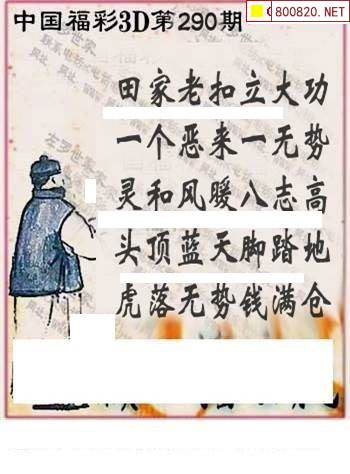 800820.NET
中国福彩3D第290期
田家老扣立大功
一个恶来一无势
灵和风暖八志高
头顶蓝天脚踏地
虎落无势钱满仓